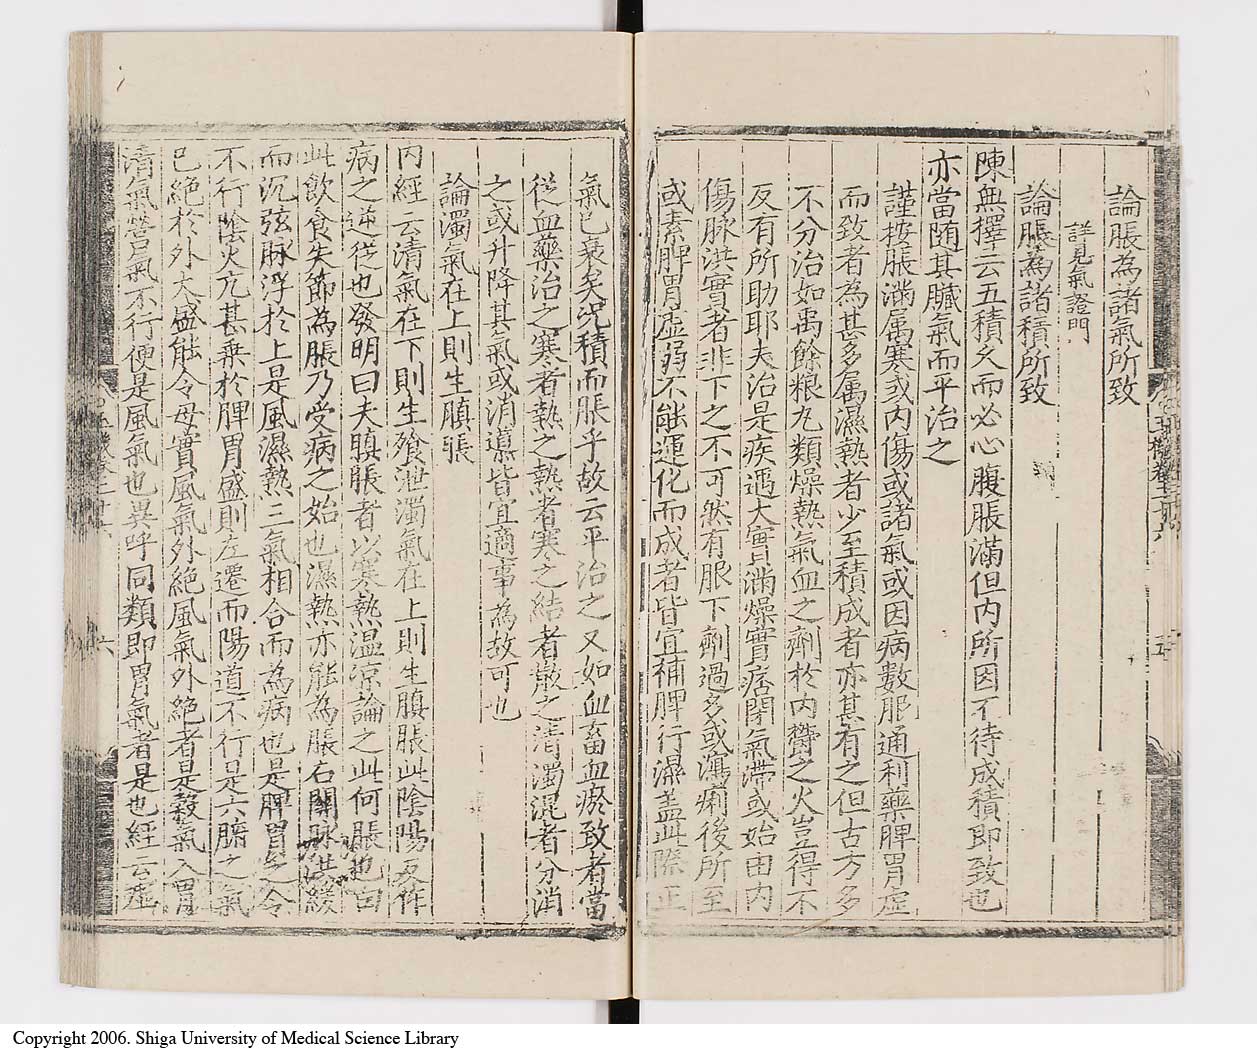 論脹為諸氣所致
詳見氣證門
論脹為諸積所致
陳無擇云五積久而必心腹脹滿但內所因不待成積即致也
亦當隨其臟氣而平治之
謹按脹滿属寒或内傷或諸氣或因病數服通利藥脾胃虛
而致者為甚多属濕熱者少至積成者亦甚有之但古方多
不分治如禹餘粮丸類燥熱氣血之劑於内欎之火豈得不
反有所助耶夫治是疾遇大實滿燥實痞閉氣滯或始由内
傷脉洪實者非下之不可然有服下劑過多或瀉痢後所至
或素脾胃虛弱不能運化而成者皆宜補脾行濕盖此際正
氣已衰矣况積而脹乎故云平治之又如血畜血瘀致者當
從血藥治之寒者熱之熱者寒之結者散之清濁混者分消
之或升降其氣或消導皆宜適事為故可也
論濁氣在上則生䐜張
内經云清氣在下則生飱泄濁氣在上則生䐜脹此陰陽反作
病之逆從也發明曰夫䐜脹者以寒熱温凉論之此何脹也曰
此飲食失節為脹乃受病之始也濕熱亦能為脹右關脉洪緩
而沉弦脉浮於上是風濕熱三氣相合而為病也是脾胃之令
不行陰火亢甚乗於脾胃盛則左遷而陽道不行是六腑之氣
已絶於外大盛能令母實風氣外絶風氣外絶者是穀氣入胃
清氣營氣不行便是風氣也異呼同類即胃氣者是也經云虛
六
Copyright 2006. Shiga University of Medical Science Library